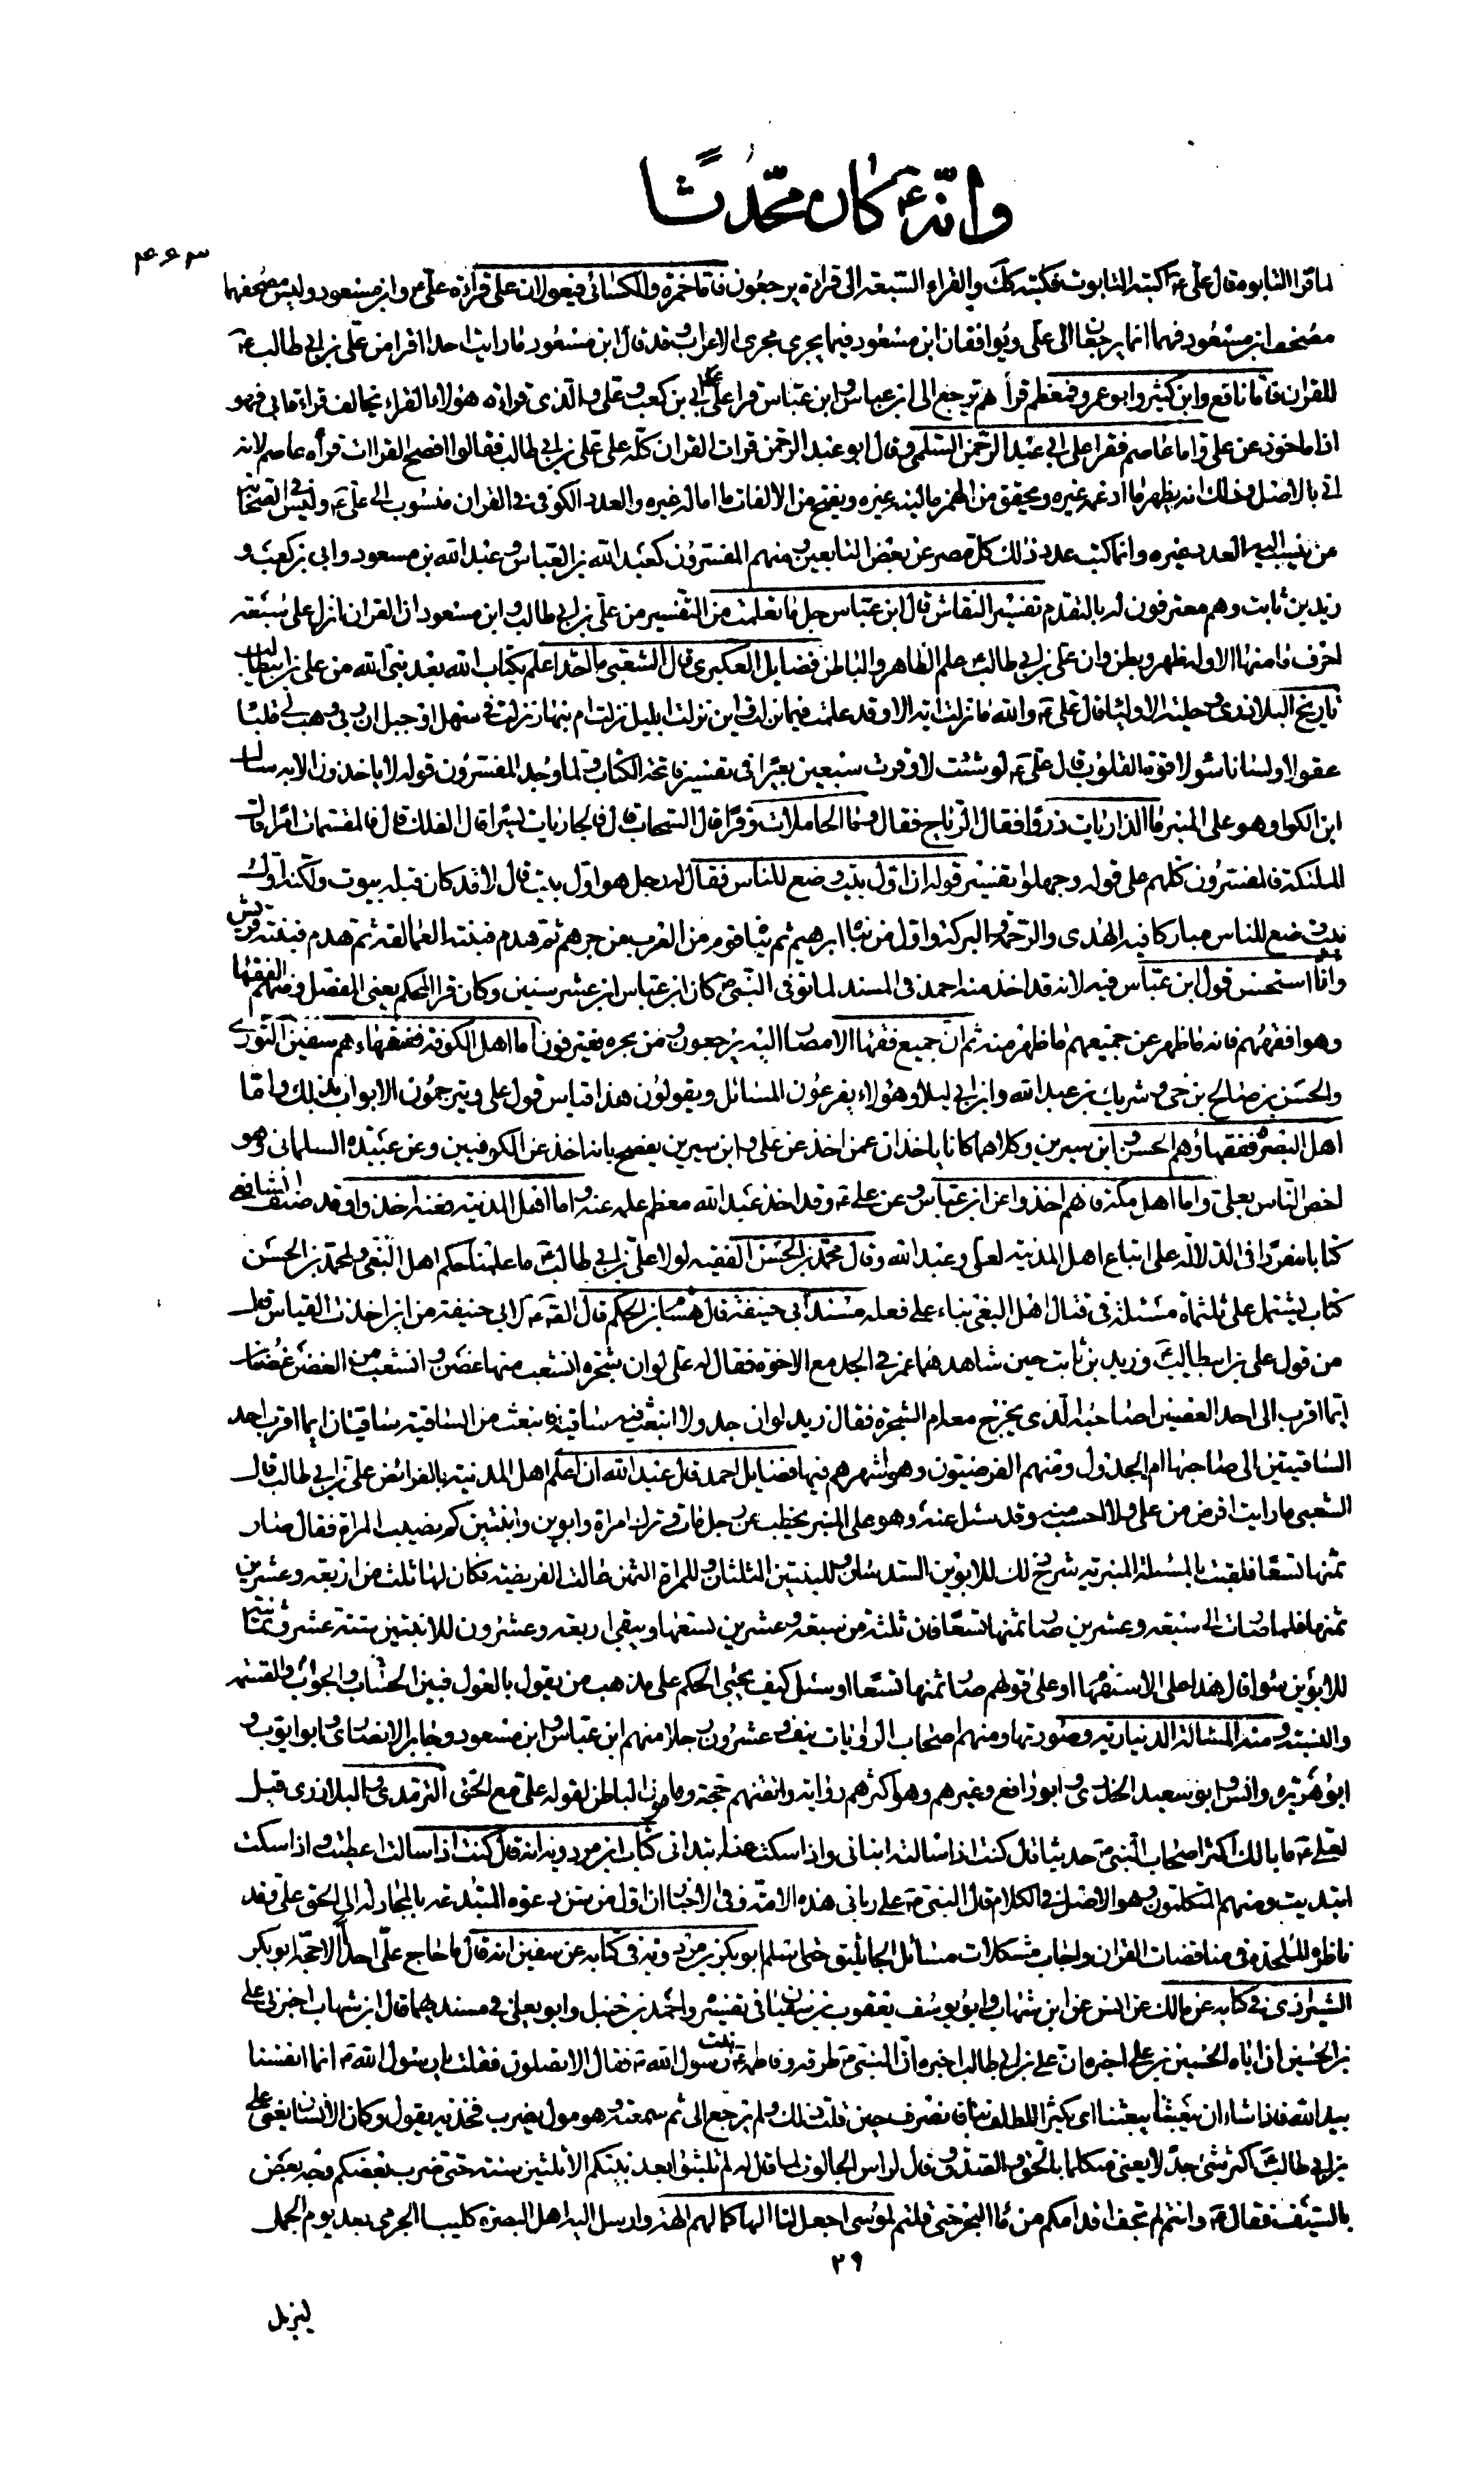 وانّه ع كان محّدثا
۴۶۳
لما قرا التابوه قال علي ع اكتبه التابوت فكتبه كك والقراء السبعة الى قراءته يرجعون فاما حمزة والكسائي فيعولان على قراءة علي ع وابن مسعود وليس مصحفهما
مصحف ابن مسعود فهما انما يرجعان الى علي ويوافقان ابن مسعود فيما يجري مجرى الاعراب وقد قال ابن مسعود ما رايت احدا اقرا من علي بن ابي طالب ع
للقران فاما نافع وابن كثير وابو عمرو فمعظم قراءاتهم ترجع الى ابن عباس وابن عباس قرا على ابي بن كعب وعلي والذي قراءته هؤلاء القراء يخالف قراءة ابي فهو
اذا ماخوذ عن علي واما عاصم فقرا على ابي عبد الرحمن السلمي وقال ابو عبد الرحمن قرات القران كله على علي بن ابي طالب فقالوا افصح القراات قراءة عاصم لانه
اتى بالاصل وذلك انه يظهر ما ادغمه غيره ويحقق من الهمز ما لينه غيره ويفتح من الالفات ما اماله غيره والعدد الكوفي في القران منسوب الى علي ع وليس في الصحابة
من ينسب اليه العدد غيره وانما كتب عدد ذلك كل مصر عن بعض التابعين ومنهم المفسرون كعبد الله بن العباس وعبد الله بن مسعود وابي بن كعب و
زيد بن ثابت وهم معترفون له بالتقدم تفسير النقاش قال ابن عباس جل ما تعلمت من التفسير من علي بن ابي طالب وابن مسعود ان القران انزل على سبعة
احرف ما منها الا وله ظهر وبطن وان علي بن ابي طالب ع علم الظاهر والباطن فضايل العكبري قال الشعبي ما احد اعلم بكتاب الله بعد نبي الله من علي بن ابيطالب
تاريخ البلاذري وحلية الاولياء قال علي ع والله ما نزلت اية الا وقد علمت فيما نزلت واين نزلت ابليل نزلت ام بنهار نزلت في سهل او جبل ان ربي وهب لي قلبا
عقولا ولسانا سئولا قوة القلوب قال علي ع لو شئت لاوقرت سبعين بعيرا في تفسير فاتحة الكتاب ولما وجد المفسرون قوله لا ياخذون الا به سال
ابن الكوا وهو على المنبر ما الذاريات ذروا فقال الرياح فقال وما الحاملات وقرا قال السحاب قال فالجاريات يسرا قال الفلك قال فالمقسمات امرا قال
الملئكة فالمفسرون كلهم على قوله وجهلوا تفسير قوله ان اول بيت وضع للناس فقال له رجل هو اول بيت قال لا قد كان قبله بيوت ولكنه اول
بيت وضع للناس مباركا فيه الهدى والرحمة والبركة واول من بناه ابرهيم ثم بناه قوم من العرب من جرهم ثم هدم فبنته العمالقة ثم هدم فبنته قريش
وانما استحسن قول ابن عباس فيه لانه قد اخذ منه احمد في المسند لما توفي النبي ص كان ابن عباس ابن عشر سنين وكان قرا المحكم يعني المفصل ومنهم الفقهاء
وهو افقههم فانه ما ظهر عن جميعهم ما ظهر منه ثم ان جميع فقهاء الامصار اليه يرجعون ومن بحره يغترفون اما اهل الكوفة ففقهاءهم سفين الثوري
والحسن بن صالح بن حي وشريك بن عبد الله وابن ابي ليلا وهؤلاء يفرعون المسائل ويقولون هذا قياس قول علي ويترجمون الابواب بذلك واما
اهل البصرة ففقهاؤهم الحسن وابن سيرين وكلاهما كانا ياخذان عمن اخذ عن علي وابن سيرين يفصح بانه اخذ عن الكوفيين وعن عبيدة السلماني وهو
اخص الناس بعلي واما اهل مكة فانهم اخذوا عن ابن عباس وعن علي ع وقد اخذ عبد الله معظم علمه عنه واما اهل المدينة فعنه اخذوا وقد صنف الشافعي
كتابا مفردا في الدلالة على اتباع اهل المدينة لعلي وعبد الله وقال محمد بن الحسن الفقيه لولا علي بن ابي طالب ع ما علمنا حكم اهل البغي ولمحمد بن الحسن
كتاب يشتمل على ثلثمائة مسئلة في قتال اهل البغي بناء على فعله مسند ابي حنيفة قال هشام بن الحكم قال الصق ع لابي حنيفة من اين اخذت القياس قال
من قول علي بن ابيطالب ع وزيد بن ثابت حين شاهدهما عمر في الجد مع الاخوة فقال له علي لو ان شجرة انشعب منها غصن وانشعب من الغصن غصنان
ايما اقرب الى احد الغصنين اصاحبه الذي يخرج معه ام الشجرة فقال زيد لو ان جدولا انبعث فيه ساقية فانبعث من الساقية ساقيتان ايما اقرب احد
الساقيتين الى صاحبها ام الجدول ومنهم الفرضيون وهو اشهرهم فيها فضايل احمد قال عبد الله ان اعلم اهل المدينة بالفرائض علي بن ابي طالب قال
الشعبي ما رايت افرض من علي ولا احسب منه وقد سئل عنه وهو على المنبر يخطب عن رجل مات وترك امراة وابوين وابنتين كم نصيب المراة فقال صار
ثمنها تسعا فلقبت بالمسئلة المنبرية شرح ذلك للابوين السدسان وللبنتين الثلثان وللمراة الثمن عالت الفريضة فكان لها ثلث من اربعة وعشرين
ثمنها فلما صارت الى سبعة وعشرين صار ثمنها تسعا فان ثلثة من سبعة وعشرين تسعها ويبقى اربعة وعشرون للابنتين ستة عشر وثمانية
للابوين سواء قال هذا على الاستفهام او على قولهم صار ثمنها تسعا او سئل كيف يجيء الحكم على مذهب من يقول بالعول فبين الحساب والجواب والقسمة
والنسبة ومنه المسالة الدينارية وصورتها ومنهم اصحاب الروايات نيف وعشرون رجلا منهم ابن عباس وابن مسعود وجابر الانصاري وابو ايوب و
ابو هريرة وانس وابو سعيد الخدري وابو رافع وغيرهم وهو اكثرهم رواية واتقنهم حجة ومامون الباطن لقوله علي مع الحق الترمذي والبلاذري قيل
لعلي ع ما بالك اكثر اصحاب النبي ص حديثا قال كنت اذا سالته انباني واذا سكت عنه ابتداني كتاب ابن مردويه انه قال كنت اذا سالت اعطيت واذا سكت
ابتديت ومنهم المتكلمون وهو الاصل في الكلام قال النبي ص علي رباني هذه الامة وفي الاخبار ان اول من سن دعوة المبتدعة بالمجادلة الى الحق علي وقد
ناظره الملحدة في مناقضات القران واجاب مشكلات مسائل الجاثليق حتى اسلم ابو بكر بن مردويه في كتابه عن سفين انه قال ما حاج علي احدا الا حجه ابو بكر
الشيرازي في كتابه عن مالك عن انس عن ابن شهاب وابو يوسف يعقوب بن سفيان في تفسيره واحمد بن حنبل وابو يعلى في مسنديهما قال ابن شهاب اخبرني علي
بن الحسين ان اباه الحسين بن علي اخبره ان علي بن ابي طالب اخبره ان النبي ص طرقه وفاطمة ع بنت رسول الله ص فقال الا تصلون فقلت يا رسول الله ص انما انفسنا
بيد الله فاذا شاء ان يبعثنا يبعثنا اي يكثر اللطف بنا فانصرف حين قلت ذلك ولم يرجع الي ثم سمعته وهو مول يضرب فخذيه يقول وكان الانسان يعني علي
بن ابي طالب ع اكثر شيء جدلا يعني متكلما بالحق والصدق وقال لراس الجالوت لما قال له لم تلبثوا بعد نبيكم الا ثلثين سنة حتى ضرب بعضكم وجه بعض
بالسيف فقال ع وانتم لم تجف اقدامكم من ماء البحر حتى قلتم لموسى اجعل لنا الها كما لهم الهة وارسل اليه اهل البصرة كليبا الجرمي بعد يوم الجمل
۲۹
ليزيل